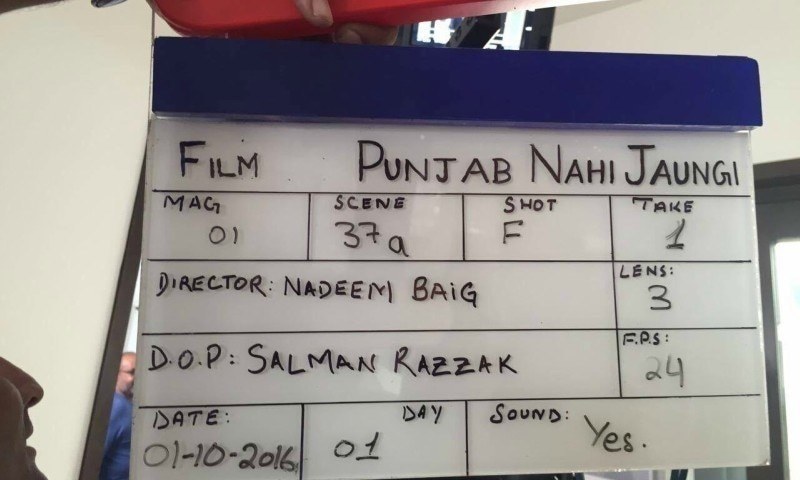 FILM PUNJAB NAHI JAUNGI
MAG SCENE SHOT TAKE
01 37a F 1
DIRECTOR: NADEEM BAIG
LENS:
3
D.O.P: SALMAN RAZZAK
F.P.S:
24
DATE: DAY SOUND:
01-10-2016 01 Yes.